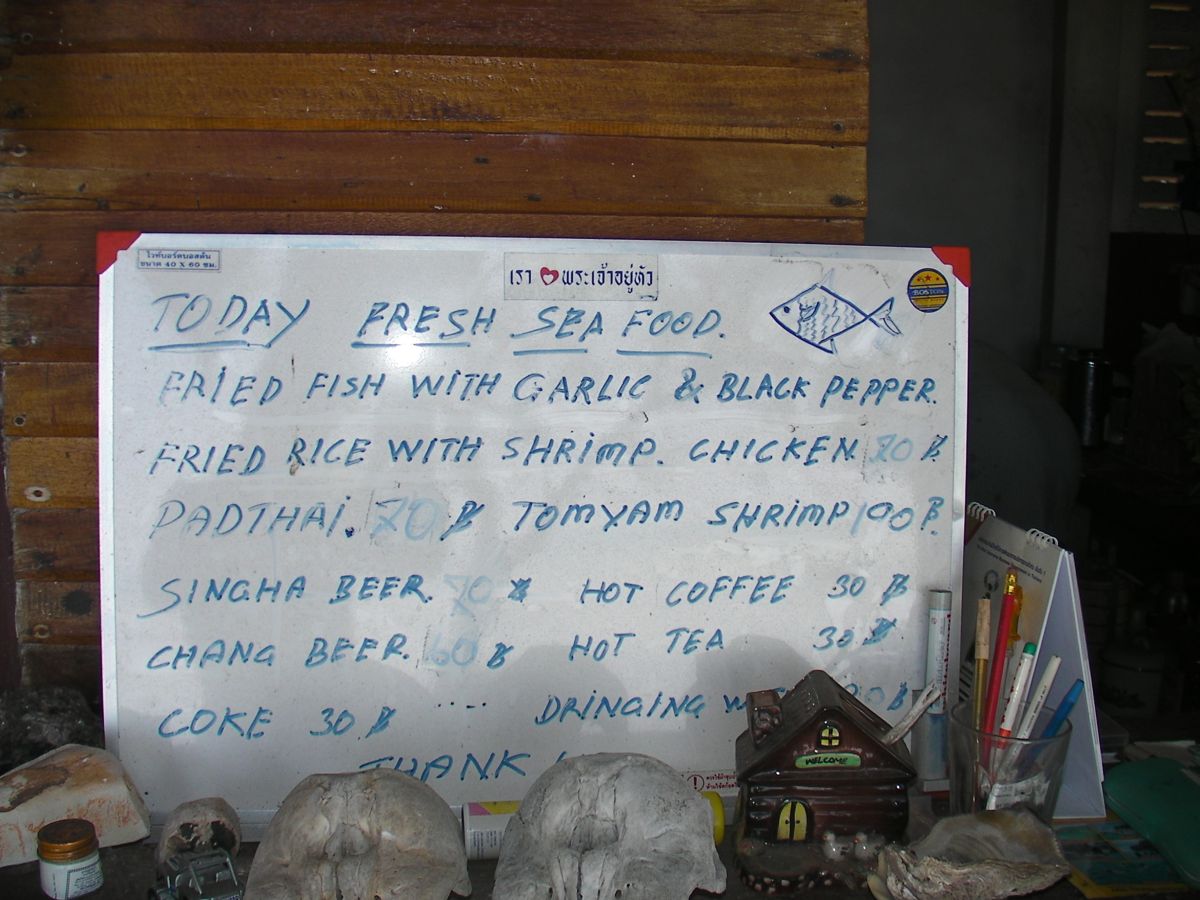 ไวท์บอร์ดบอสตัน
ขนาด 40 X 60 ซม.
เรา ❤ พระเจ้าอยู่หัว
BOSTON
TODAY FRESH SEA FOOD.
FRIED FISH WITH GARLIC & BLACK PEPPER.
FRIED RICE WITH SHRIMP. CHICKEN 70 ฿.
PADTHAI. 70 ฿ TOMYAM SHRIMP 100 ฿.
SINGHA BEER. 70 ฿ HOT COFFEE 30 ฿
CHANG BEER. 60 ฿ HOT TEA 30 ฿
COKE 30 ฿ .... DRINGING
THANK
WELCOME